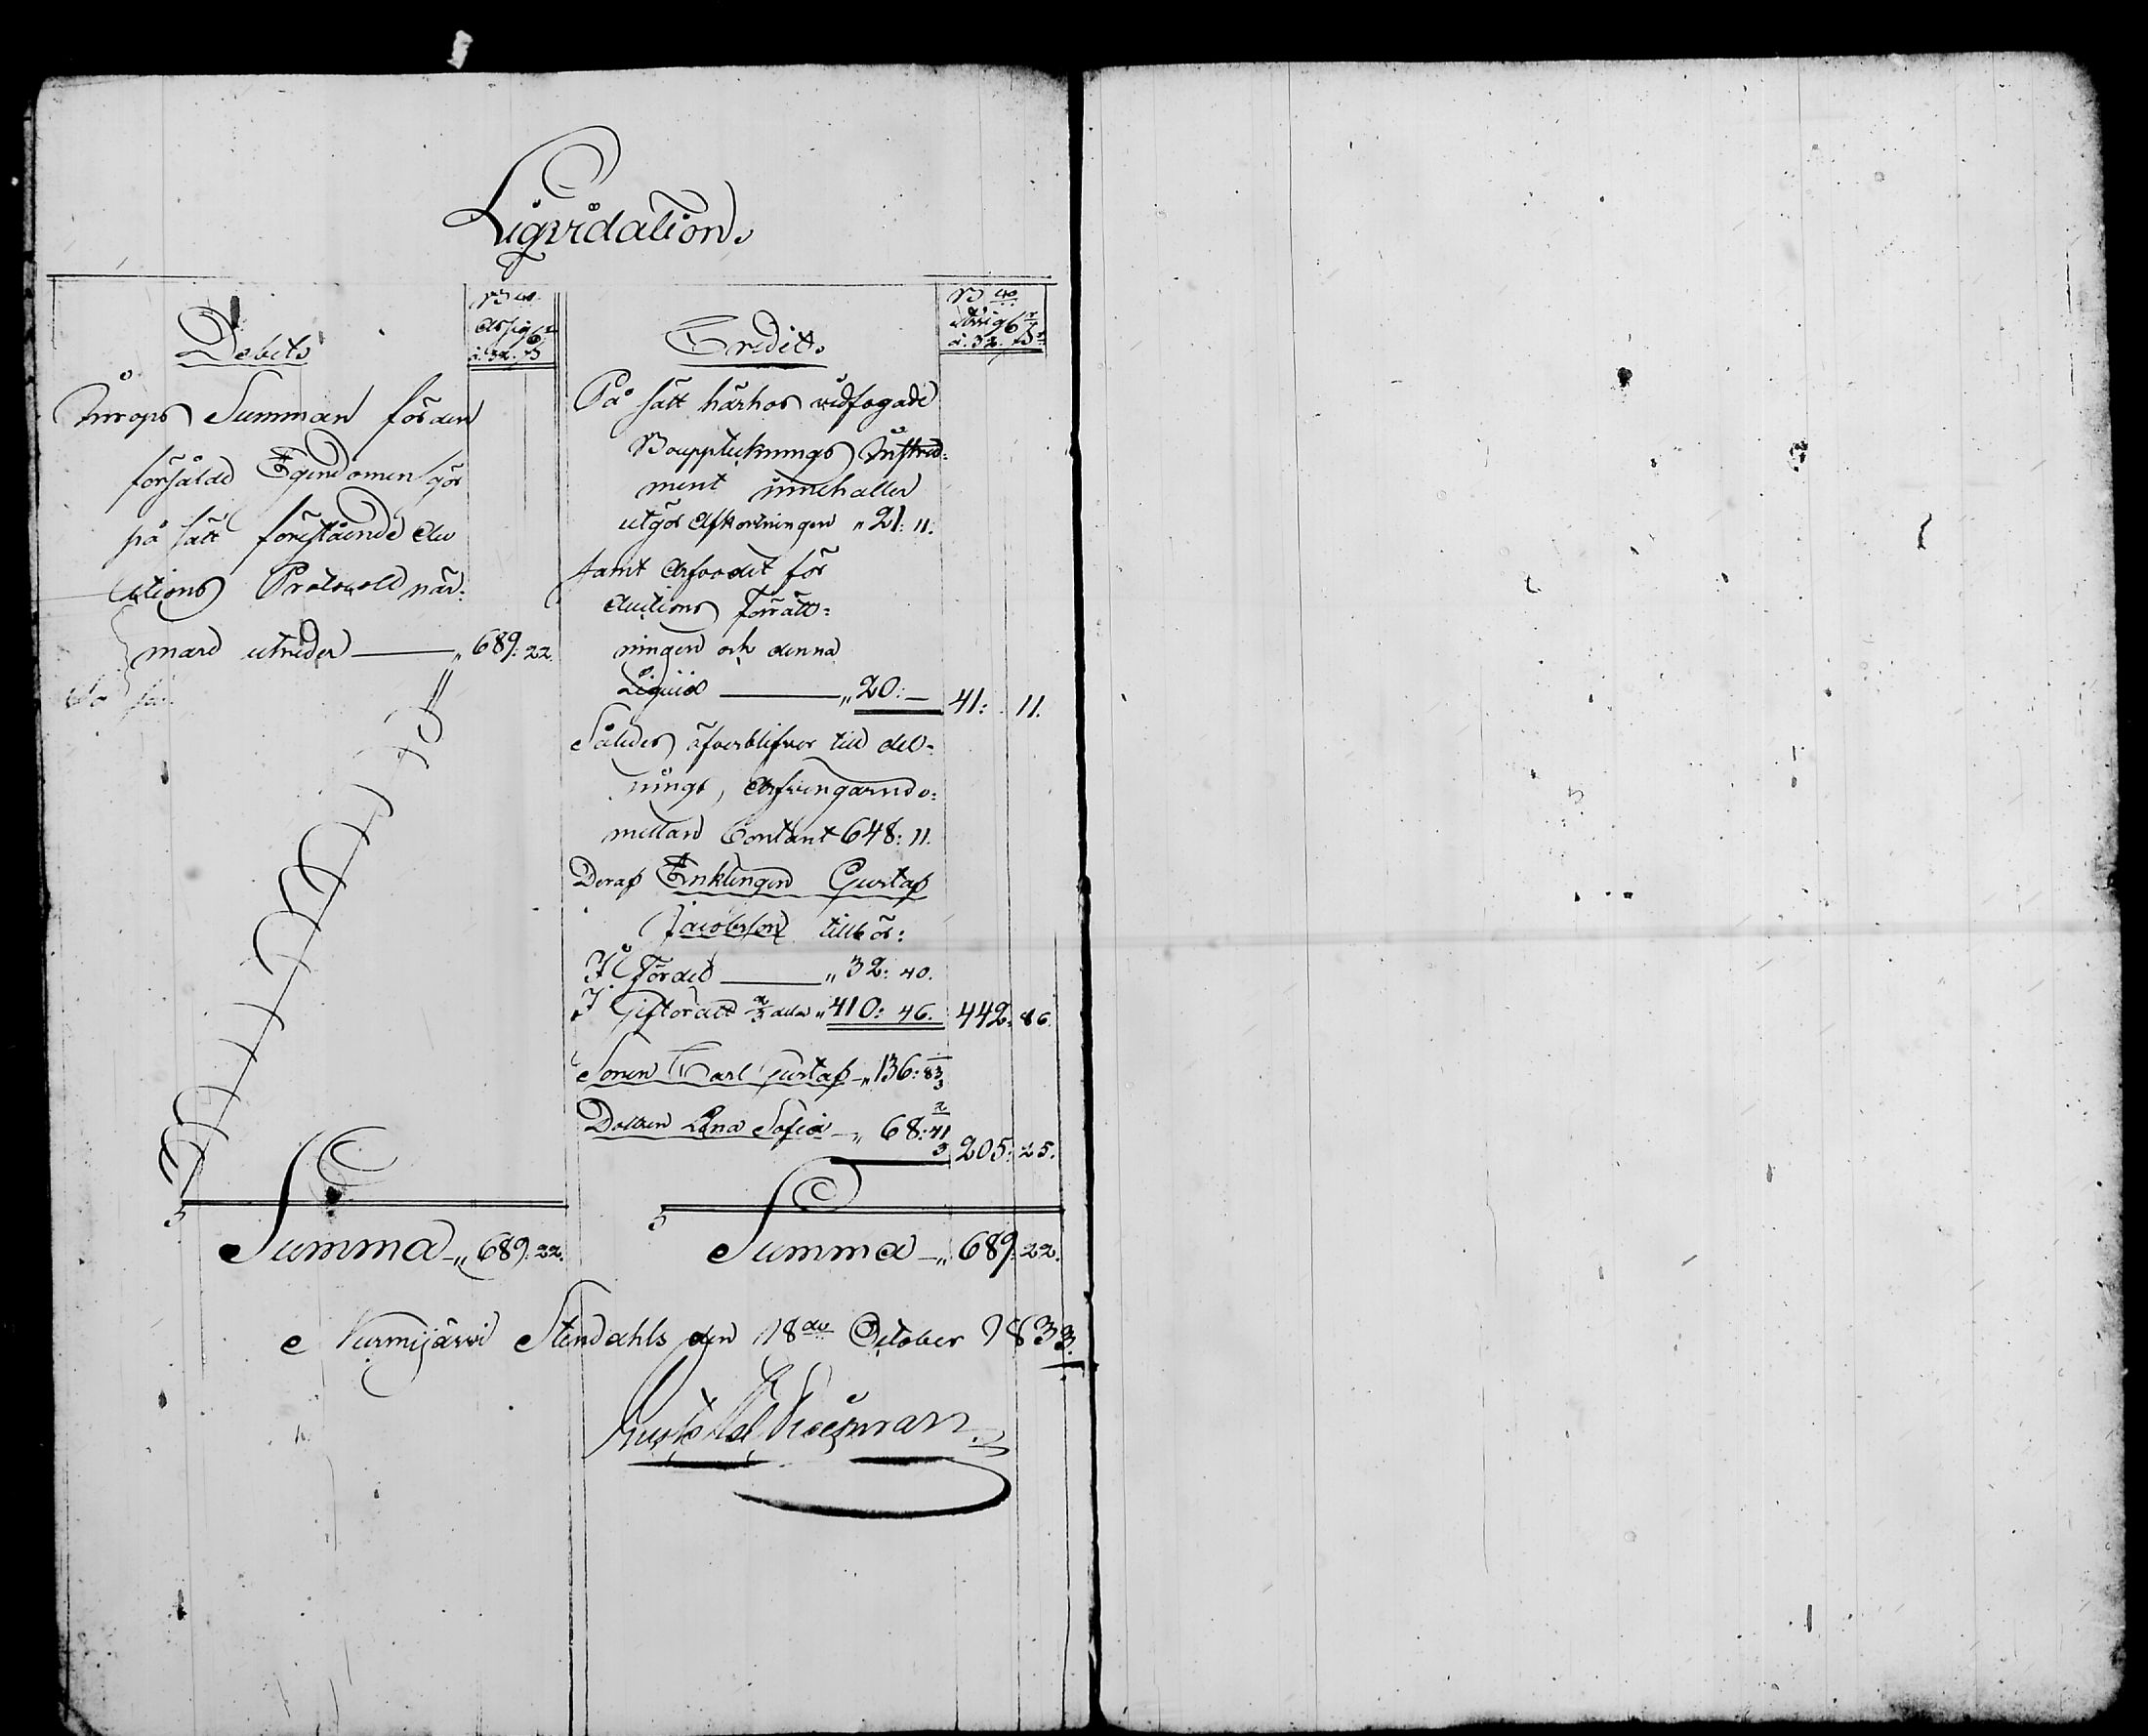 Liqvidation.
Debet.
B co
Assig
à 32. ß
Inrops Summan för den
försålde Egendomen gör
på sätt förestående Auc
ctions Protocoll när-
mare utvider — „ 689: 22.
Credit.
B co
Assig
à. 32. ß
På sätt härhos vidfogade
Bouppteknings Instru-
ment innehaller
utgör Afkortningen „ 21: 11.
samt Arfvodet för
Auctions Förrätt-
ningen och denna
Liquid — „ 20: — 41: 11.
Således öfverblifver till del-
nings, Arfvingarne e-
mellan Contant 648: 11.
Deraf Enklingen Gustaf
Jacobsson tillkör:
I Fördel — „ 32: 40.
I Giftorätt 2/3 delar „ 410: 46. 442: 86.
Sonen Carl Gustaf — „ 136: 83 1/3
Dottren Lena Sofia — „ 68: 41 2/3 205: 25.
Summa — „ 689: 22.
Summa — „ 689: 22.
Nurmijärvi Stendahls den 18de October 1833.